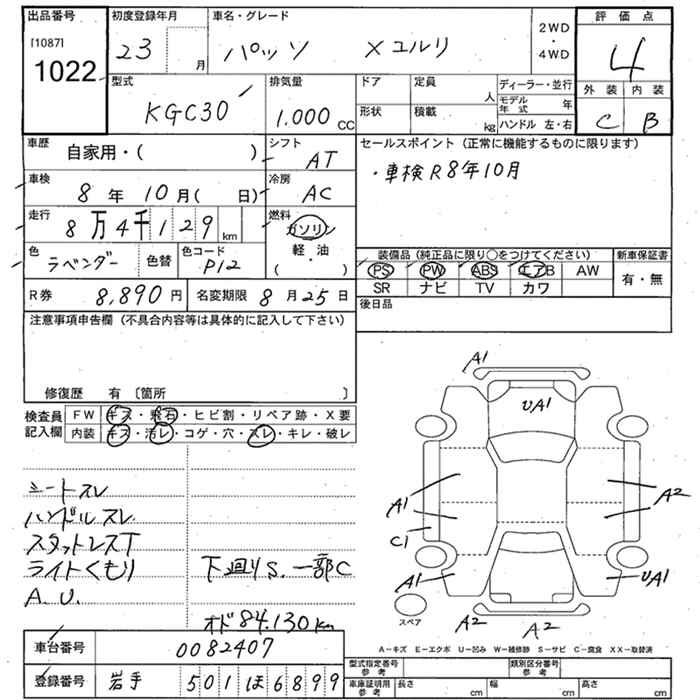 出品番号
[1087]
1022
初度登録年月
23 月
車名・グレード
パッソ Xユルリ
2WD
・
4WD
評価点
4
外装 内装
C B
型式
KGC30
排気量
1.000 cc
ドア
定員 人
形状
積載 kg
ディーラー・並行
モデル年式 年
ハンドル 左・右
車歴
自家用・( )
シフト
AT
車検
8年10月( 日)
冷房
AC
走行
8万4千129 km
燃料
ガソリン
軽・油
( )
色
ラベンダー
色替
色コード
P12
R券 8,890円
名変期限 8月25日
セールスポイント(正常に機能するものに限ります)
・車検R8年10月
装備品(純正品に限り○をつけてください)
PS PW ABS エアB AW
SR ナビ TV カワ
新車保証書
有・無
後日品
注意事項申告欄(不具合内容等は具体的に記入して下さい)
修復歴 有〔箇所 〕
検査員記入欄
FW キズ・飛石・ヒビ割・リペア跡・X要
内装 キズ・汚レ・コゲ・穴・スレ・キレ・破レ
シートスレ
ハンドルスレ
スタットレスT
ライトくもり
A.U.
下廻りS.一部C
オド84.130km
A1
UA1
A1
A2
C1
A1
UA1
A2
A2
スペア
A-キズ E-エクボ U-凹み W-補修跡 S-サビ C-腐食 XX-取替済
車台番号
0082407
登録番号
岩手 501 ほ 6899
型式指定番号
参考
類別区分番号
参考
車庫証明用
参考
長さ cm
幅 cm
高さ cm